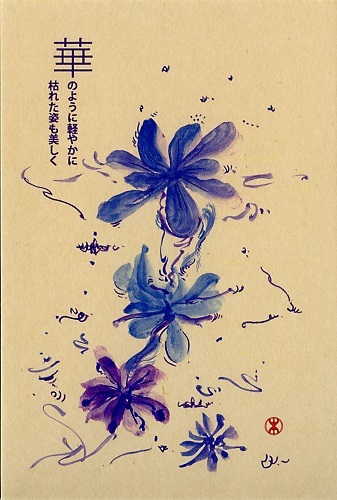 華
のように軽やかに
枯れた姿も美しく